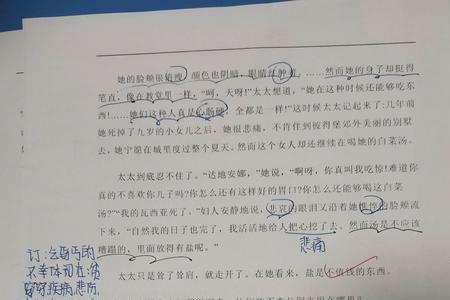 她的脸颊很消瘦，颜色也阴暗，眼睛红肿着。……然而她的身子却挺得
笔直，像在教堂里一样。“呵，天呀！”太太想道，“她在这种时候还能够吃东
西！……她们这种人真是心肠硬，全都是一样！”这时候太太记起来了：几年前
她死掉了九岁的小女儿之后，她很悲痛，不肯住到彼得堡郊外美丽的别墅
去，她宁愿在城里度过整个夏天。然而这个女人却还继续在喝她的白菜汤。
太太到底忍不住了。“达地安娜，”她说，“啊呀，你真叫我吃惊！难道你
真的不喜欢你儿子吗？你怎么还有这样好的胃口？你怎么还能够喝这白菜
汤？”“我的瓦西亚死了，”妇人安静地说，悲哀的眼泪又沿着她憔悴的脸颊流
下来，“自然我的日子也完了，我活活地给人把心挖了去。然而汤是不应该
糟蹋的，里面放得有盐呢。”
悲痛
太太只是耸了耸肩，就走开了。在她看来，盐是不值钱的东西。